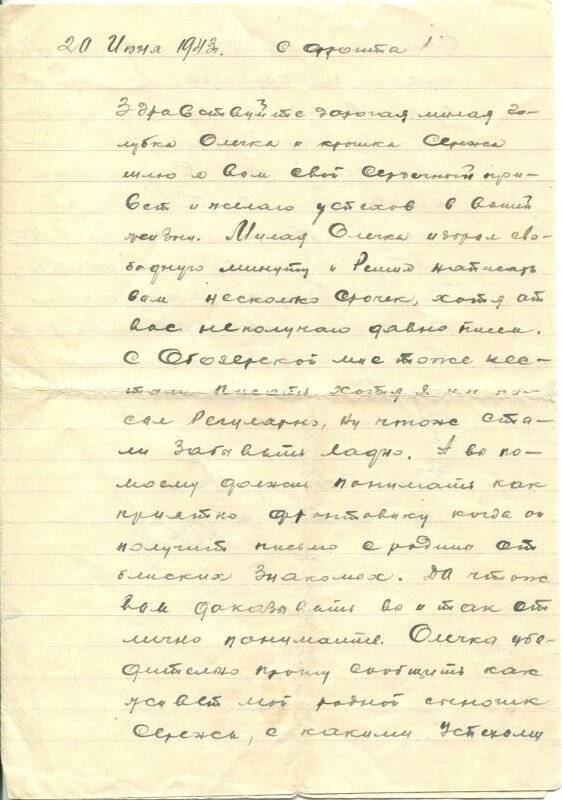 20 Июня 1943г. С фронта 1
Здравствуйте дорогая милая го-
лубка Олечка и крошка Сережа
шлю я вам свой Сердечный при-
вет и желаю успехов в вашей
жизни. Милая Олечка избрал сво-
бодную минуту и Решил написать
вам несколько строчек, хотя от
вас неполучаю давно писем.
С Обозерской мне тоже нес-
тали писать хотя я им пи-
сал Регулярно, ну чтоже ста-
ли Забывать ладно. А вы по-
моему должны понимать как
приятно фронтовику когда он
получит письмо с родины от
близких Знакомых. Да чтож
вам доказывать вы и так от
лично понимаите. Олечка убе-
дительно прошу сообщить как
живет мой родной сыночек
Сережа, с какими Успехами